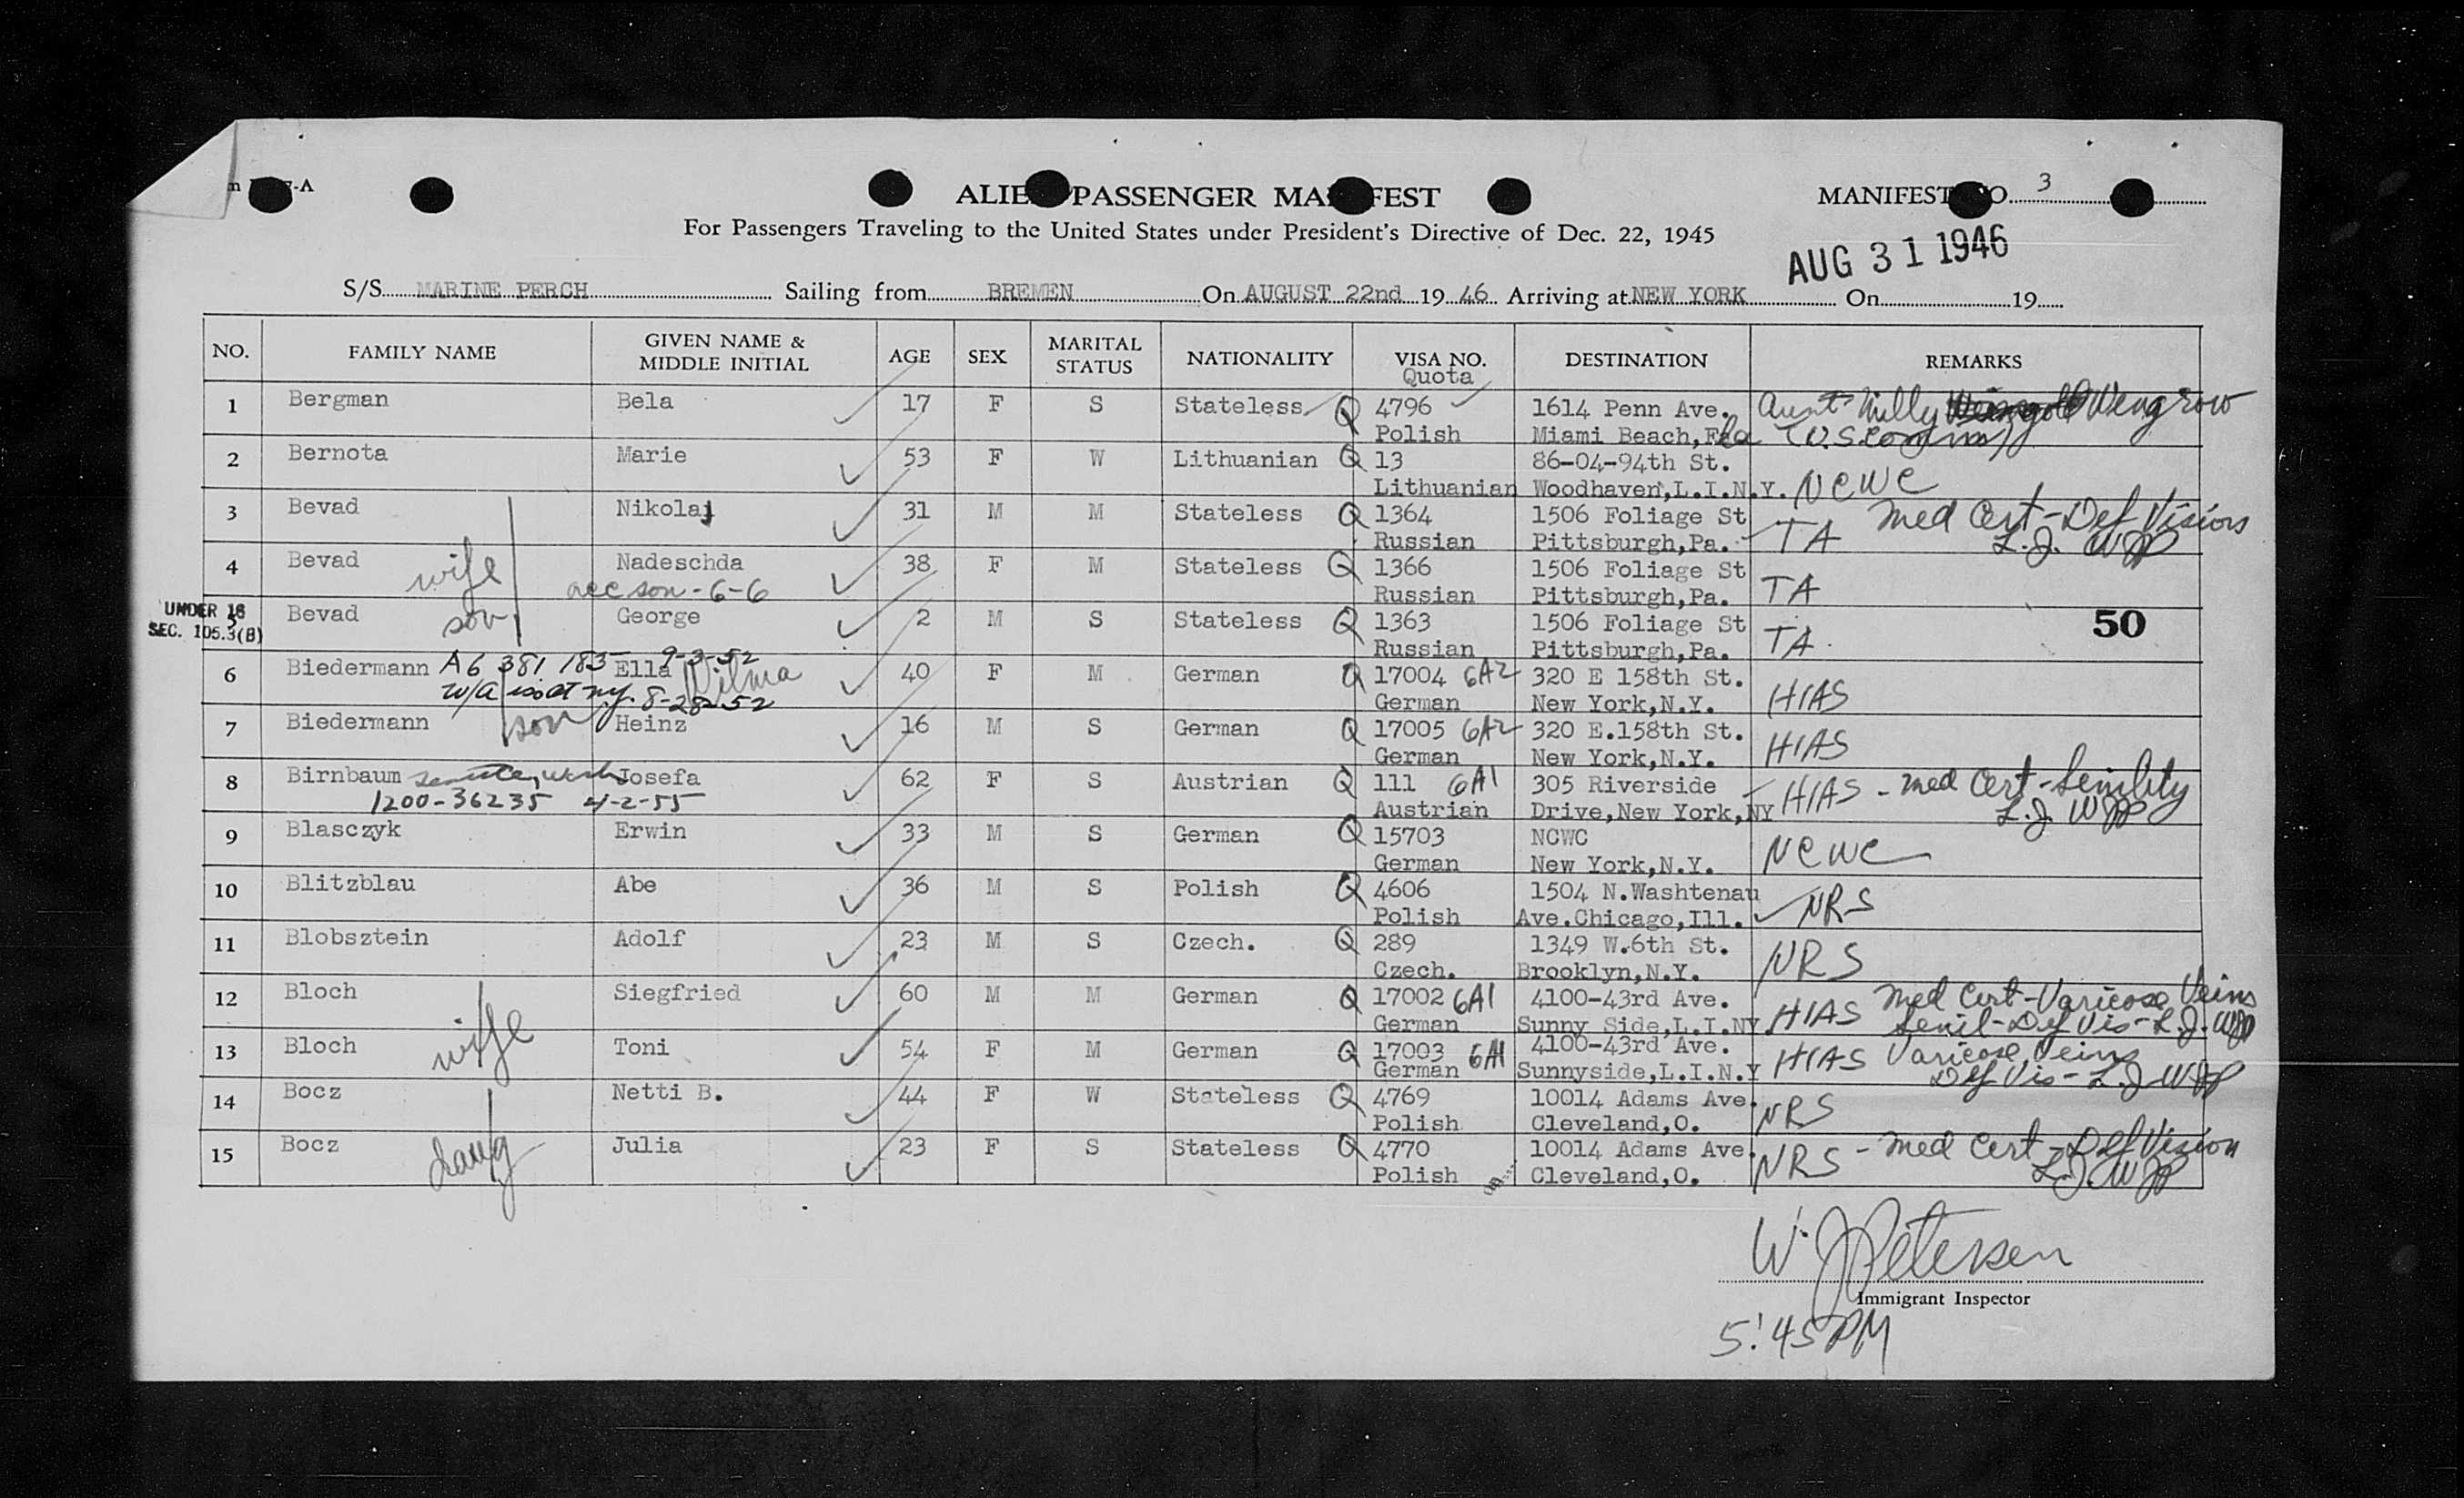 ALIEN PASSENGER MANIFEST
MANIFEST NO. 3
For Passengers Traveling to the United States under President's Directive of Dec. 22, 1945
AUG 31 1946
S/S MARINE PERCH Sailing from BREMEN On AUGUST 22nd 19 46 Arriving at NEW YORK On 19
NO. FAMILY NAME GIVEN NAME & MIDDLE INITIAL AGE SEX MARITAL STATUS NATIONALITY VISA NO. Quota DESTINATION REMARKS
1 Bergman Bela 17 F S Stateless Q 4796 1614 Penn Ave. Aunt Milly Wengrow
Polish Miami Beach, Fla
2 Bernota Marie 53 F W Lithuanian Q 13 86-04-94th St.
Lithuanian Woodhaven, L.I.N.Y. NCWC
3 Bevad Nikolaj 31 M M Stateless Q 1364 1506 Foliage St Med Cert - Def Vision
Russian Pittsburgh, Pa. TA L.J. WJP
4 Bevad wife Nadeschda 38 F M Stateless Q 1366 1506 Foliage St
acc son - 6-6 Russian Pittsburgh, Pa. TA
UNDER 16
SEC. 105.3(B)
5 Bevad son George 2 M S Stateless Q 1363 1506 Foliage St 50
Russian Pittsburgh, Pa. TA
6 Biedermann A6 381 183 Ella 9-3-52 Wilma 40 F M German Q 17004 6A2 320 E 158th St.
8-28-52 German New York, N.Y. HIAS
7 Biedermann son Heinz 16 M S German Q 17005 6A2 320 E.158th St.
German New York, N.Y. HIAS
8 Birnbaum Josefa 62 F S Austrian Q 111 6A1 305 Riverside HIAS - Med Cert - Senility
1200-36235 4-2-55 Austrian Drive, New York, NY L.J. WJP
9 Blasczyk Erwin 33 M S German Q 15703 NCWC
German New York, N.Y. NCWC
10 Blitzblau Abe 36 M S Polish Q 4606 1504 N.Washtenau
Polish Ave.Chicago, Ill. NRS
11 Blobsztein Adolf 23 M S Czech. Q 289 1349 W.6th St.
Czech. Brooklyn, N.Y. NRS
12 Bloch Siegfried 60 M M German Q 17002 6A1 4100-43rd Ave. Med Cert - Varicose Veins
German Sunny Side, L.I.NY. HIAS Senil - Def Vis - L.J. WJP
13 Bloch wife Toni 54 F M German Q 17003 6A1 4100-43rd Ave. HIAS Varicose Veins
German Sunnyside, L.I.N.Y Def Vis - L.J. WJP
14 Bocz Netti B. 44 F W Stateless Q 4769 10014 Adams Ave.
Polish Cleveland, O. NRS
15 Bocz daug Julia 23 F S Stateless Q 4770 10014 Adams Ave. NRS - Med Cert - Def Vision
Polish Cleveland, O. L.J. WJP
W. J. Petersen
Immigrant Inspector
5:45 PM